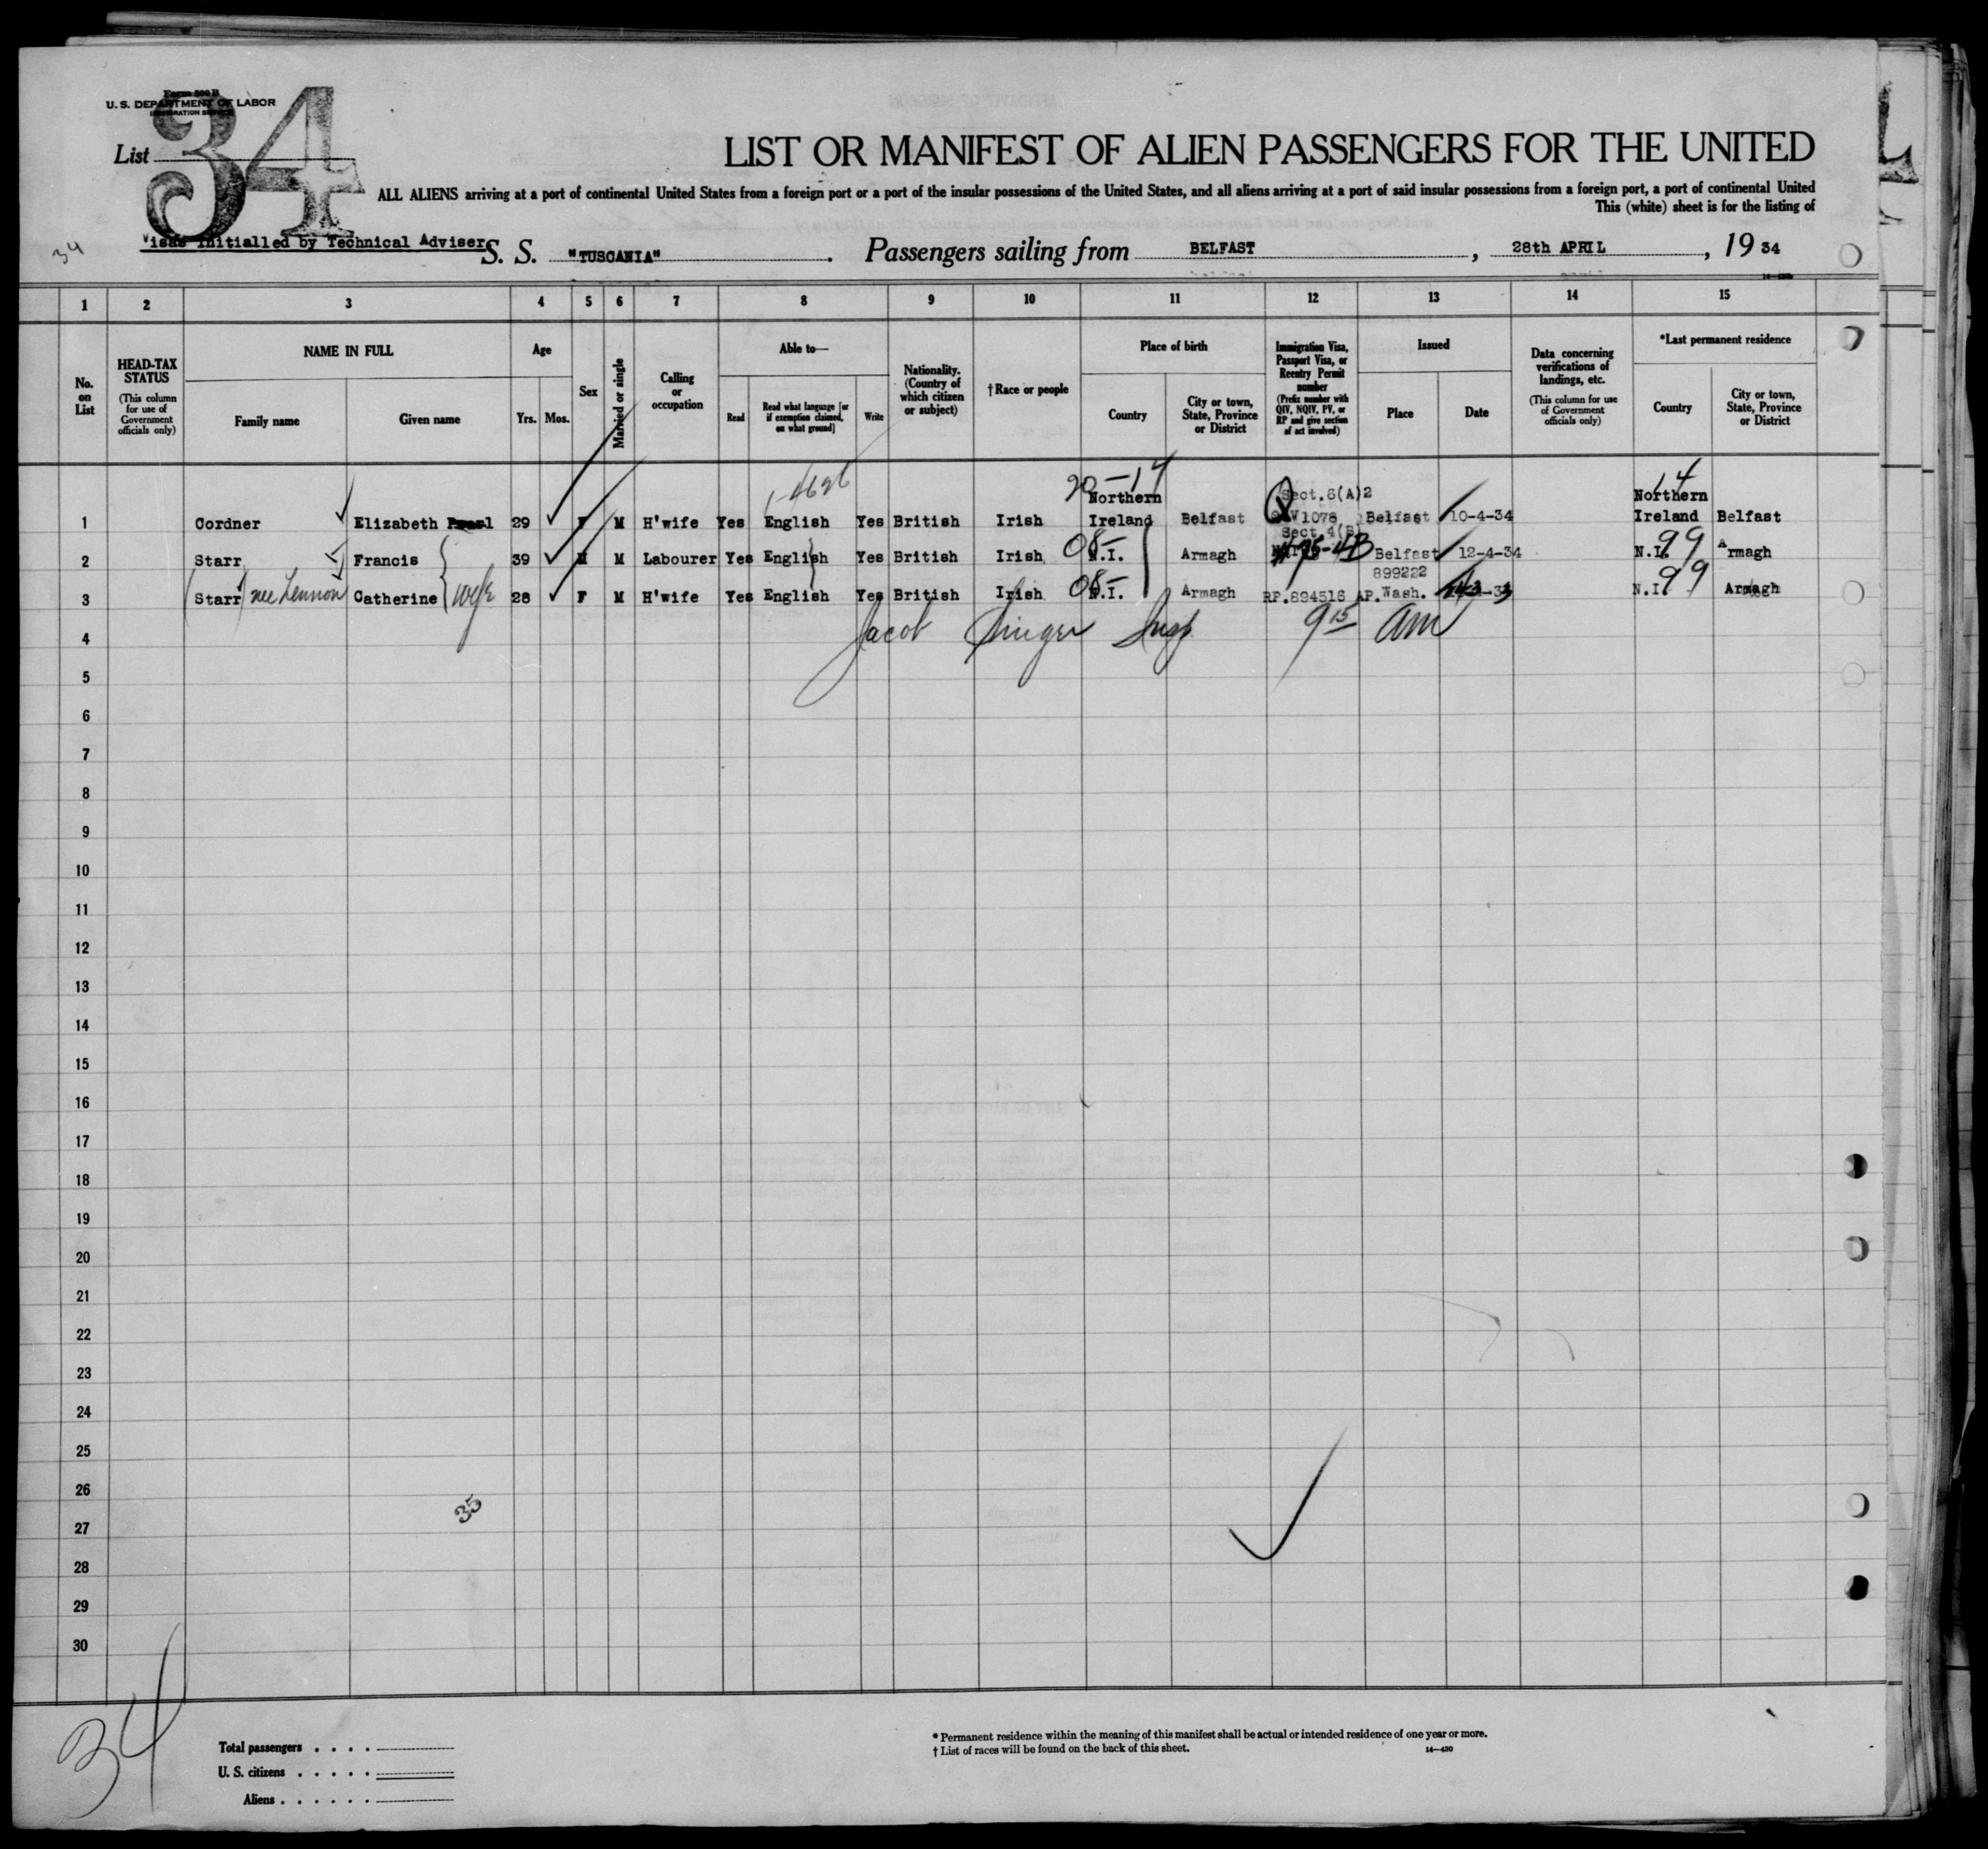 Form 500 B
U. S. DEPARTMENT OF LABOR
IMMIGRATION SERVICE
List 34
LIST OR MANIFEST OF ALIEN PASSENGERS FOR THE UNITED
ALL ALIENS arriving at a port of continental United States from a foreign port or a port of the insular possessions of the United States, and all aliens arriving at a port of said insular possessions from a foreign port, a port of continental United
This (white) sheet is for the listing of
34
Visas Initialled by Technical Adviser
S. S. "TUSCANIA". Passengers sailing from BELFAST, 28th APRIL, 19 34
1 2 3 4 5 6 7 8 9 10 11 12 13 14 15
No. on List
HEAD-TAX STATUS
(This column for use of Government officials only)
NAME IN FULL
Family name Given name
Age
Yrs. Mos.
Sex
Married or single
Calling or occupation
Able to—
Read
Read what language [or if exemption claimed, on what ground]
Write
Nationality. (Country of which citizen or subject)
†Race or people
Place of birth
Country
City or town, State, Province or District
Immigration Visa, Passport Visa, or Reentry Permit number
(Prefix number with QIV, NQIV, PV, or RP and give section of act involved)
Issued
Place Date
Data concerning verifications of landings, etc.
(This column for use of Government officials only)
*Last permanent residence
Country
City or town, State, Province or District
20-14 Northern Sect.6(A)2 14 Northern
1 Cordner Elizabeth Pearl 29 F M H'wife Yes English Yes British Irish Ireland Belfast 1078 Belfast 10-4-34 Ireland Belfast
Sect.4(B)
2 Starr Francis 39 M M Labourer Yes English Yes British Irish 08- N.I. Armagh Belfast 12-4-34 N.I. 99 Armagh
899222
3 (Starr) nee Lennon Catherine wife 28 F M H'wife Yes English Yes British Irish 08- N.I. Armagh RP.894516 AP. Wash. N.I. 99 Armagh
4 Jacob Singer Insp 9 15 am
5
6
7
8
9
10
11
12
13
14
15
16
17
18
19
20
21
22
23
24
25
26
35
27
28
29
30
34
Total passengers . . . .
U. S. citizens . . . . .
Aliens . . . . . .
* Permanent residence within the meaning of this manifest shall be actual or intended residence of one year or more.
† List of races will be found on the back of this sheet.
14—430